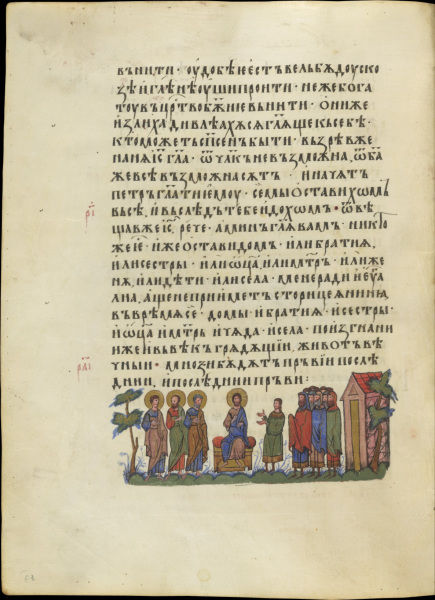 вънити · оудобѣе естъ вельбѫдоу ско
ꙁѣ иглѣнѣ оуши проити · неже бога
тоу въ црⷭ҇тво бж҃ие вънити · ѡни же
иꙁлиха дивлѣахѫсѧ гл҃ѫще къ себѣ ·
кто можетъ сп҃сенъ быти · въꙁрѣв же
на нѧ іс҃ гл҃а · ѿ чл҃къ невъꙁможна, ѿ ба҃
же всѣ въꙁможна сѫтъ · и начѧтъ
петръ гл҃ати емоу · се мы ѡставихѡмъ
въсѣ, и въслѣдъ тебе идохѡмъ · ѿвѣ
щав же іс҃, рече · аминь гл҃ѫ вамъ · никто
же е, иже ѡстави дом · или братиѧ,
или сестры · или ѡц҃а, или мт҃рь · или же
нѫ, или дѣти · или села · мене ради и еѵ҃а
лиа, аще не прииметъ сторицеѫ нинꙗ
въ врѣмѧ се · домы · и братиѧ · и сестры ·
и ѡц҃а и мт҃рь и чѧда · и села · по иꙁгнани
и же и въ вѣкъ грѧдѫщии, животъ вѣ
чныи · мноꙁи бѫдѫтъ пръвии послѣ
днии, и послѣднии пръви :